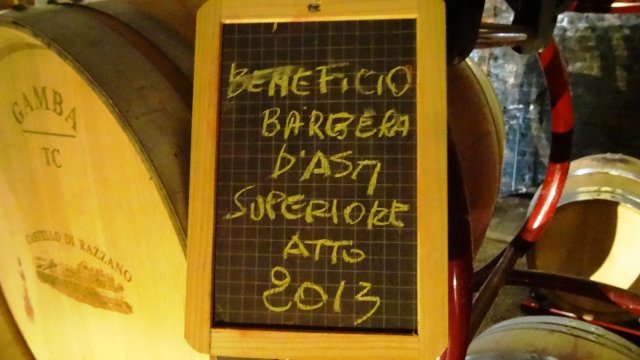 GAMBA
TC
CASTELLO DI RAZZANO
BENEFICIO
BARBERA
D'ASTI
SUPERIORE
ATTO
2013